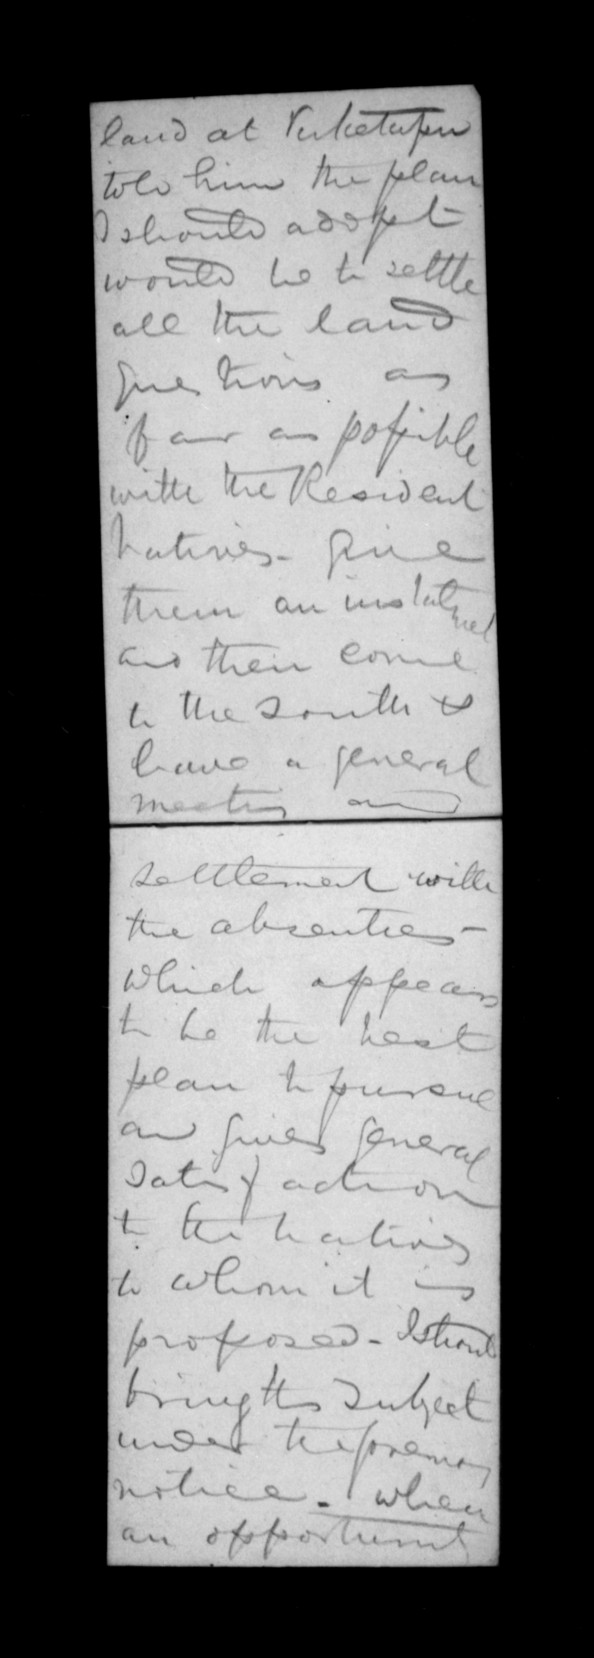 land at Puketapu
told him the plan
I should adopt
would be to settle
all the land
questions as
far as possible
with the Resident
Natives - give
them an instalment
and then come
to the South &
have a general
meeting and
settlement with
the absentees -
which appears
to be the best
plan to pursue
and gives general
Satisfaction
to the natives
to whom it is
proposed - I should
bring the subject
under
notice - when
an opportunity